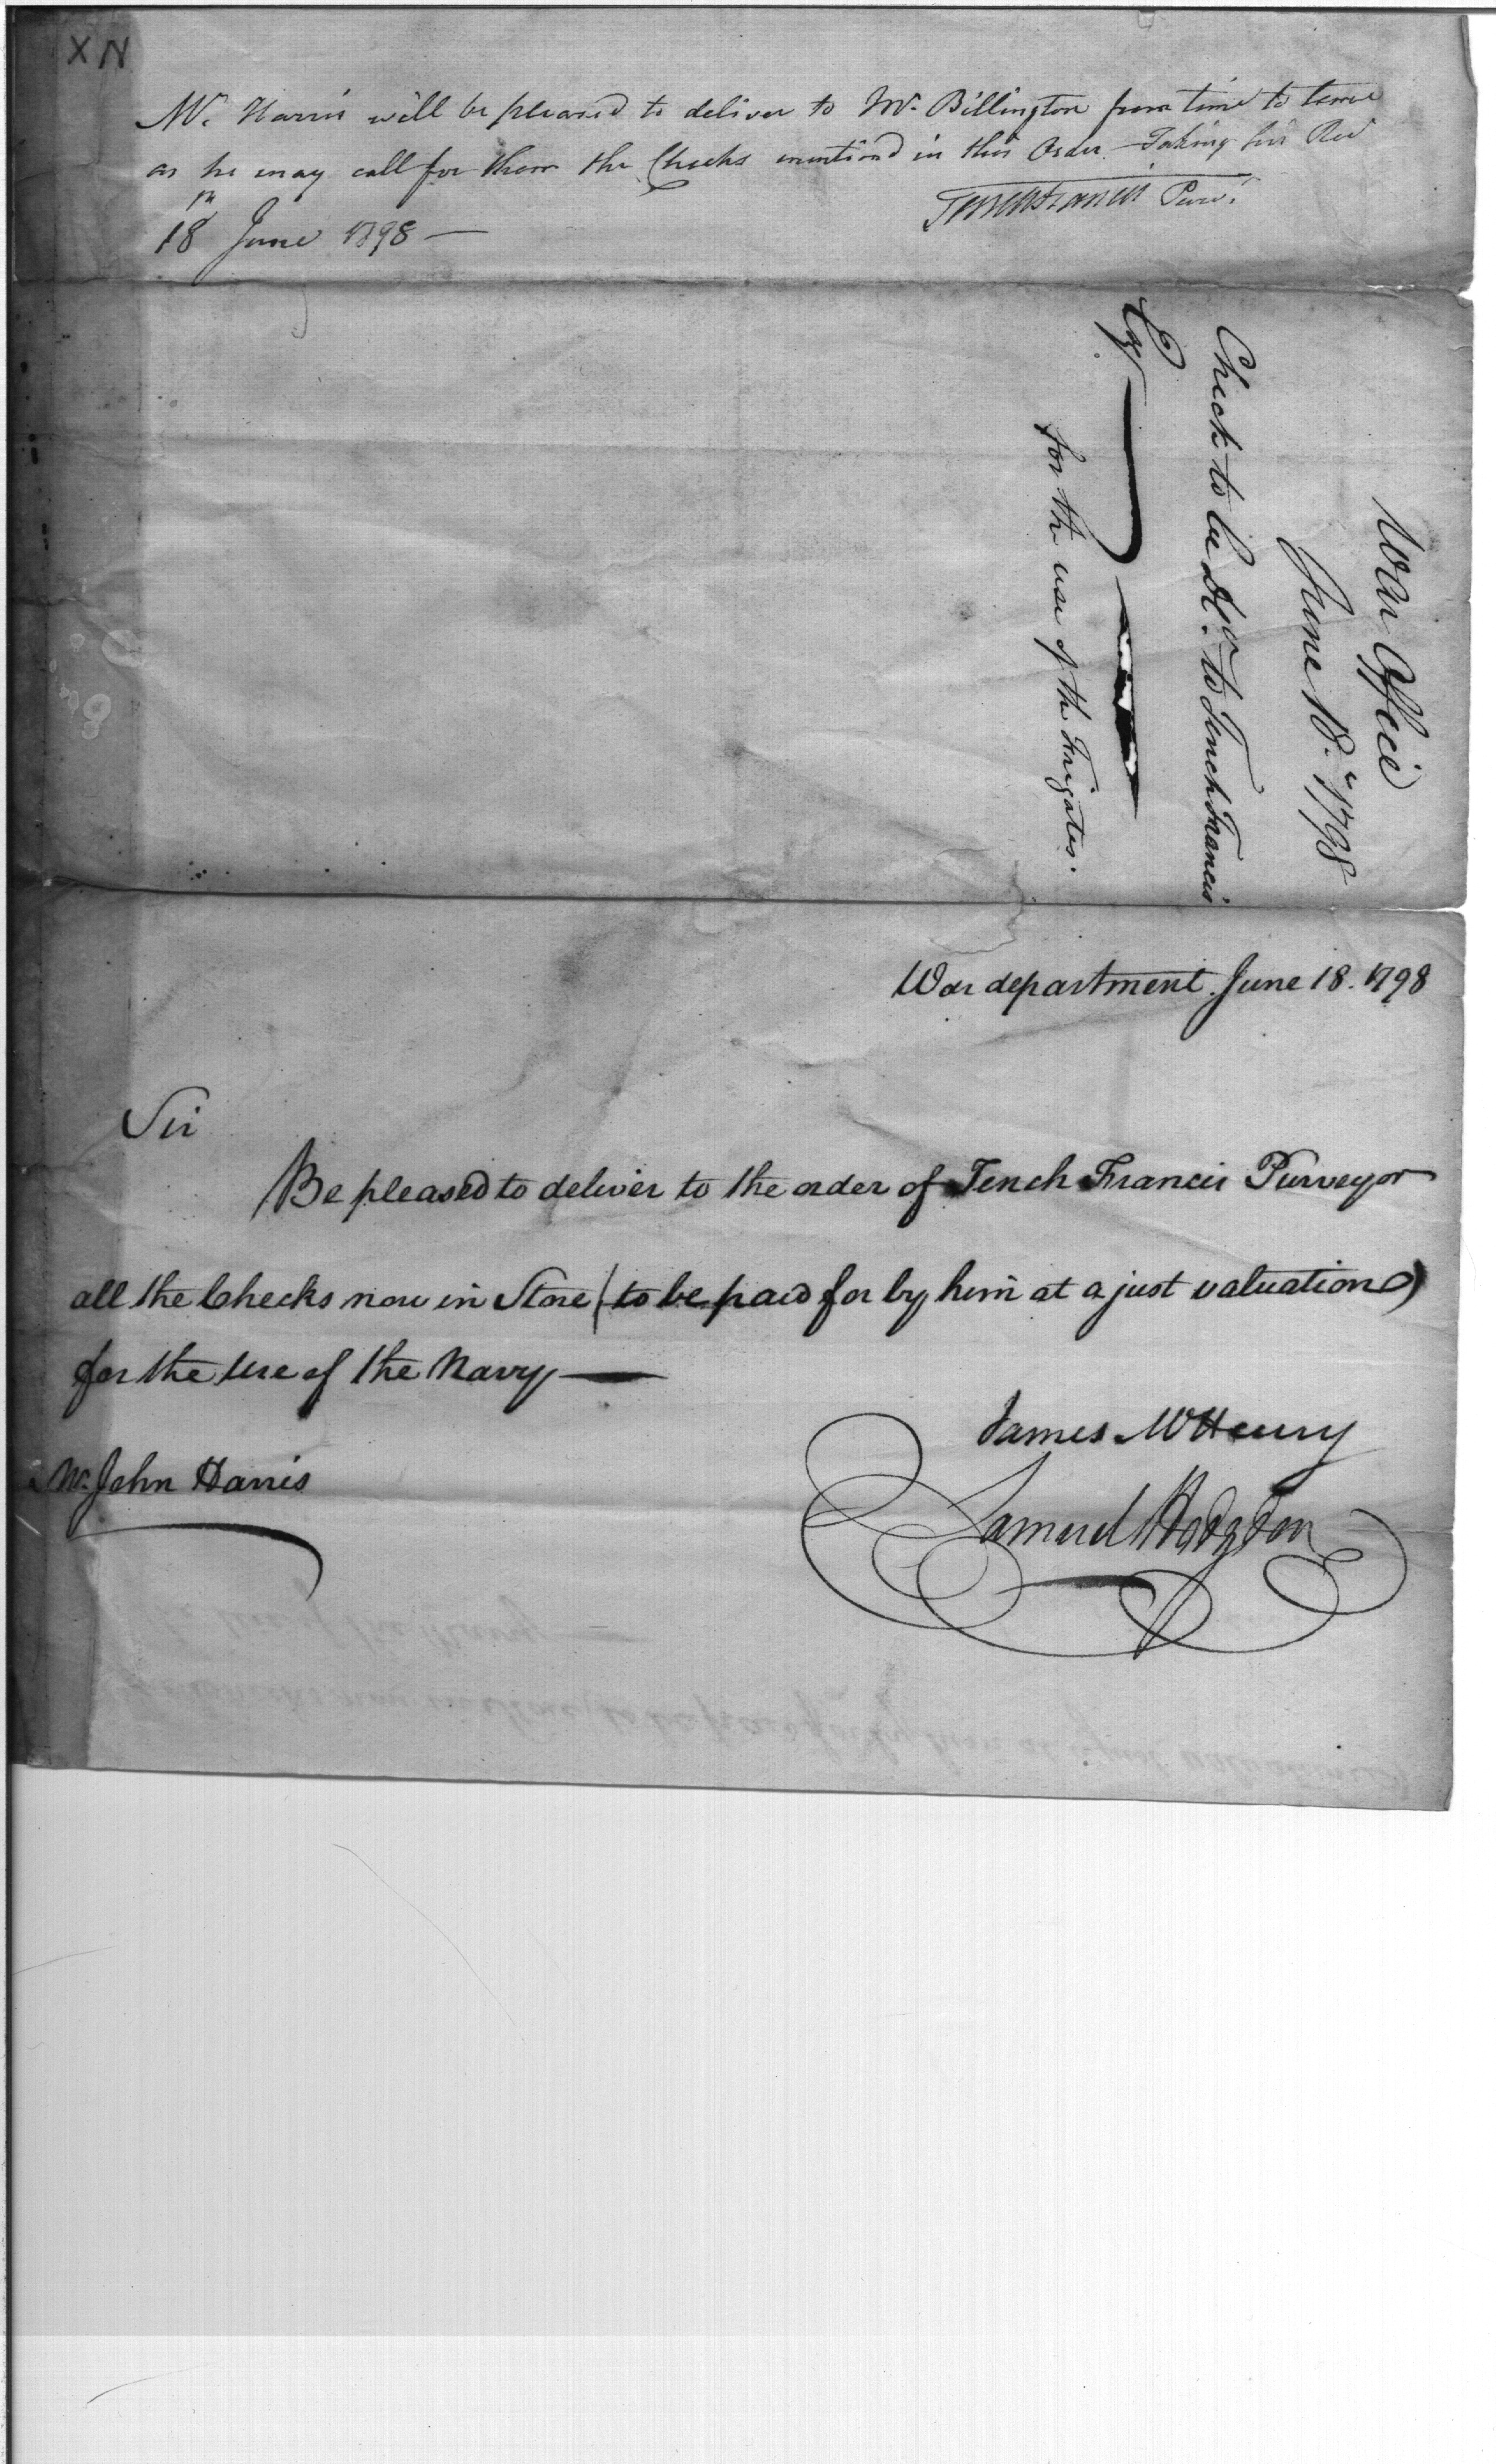 XN
Mr. Harris will be pleased to deliver to Mr. Billington from time to time
as he may call for them the Checks mentiond in this Order - Taking his Rect
Tench Francis Purvr.
18th June 1798 —
War Office
June 18th 1798
Check to be Dld. to Tench Francis
Esqr
for the use of the Frigates.
War department June 18. 1798
Sir
Be pleased to deliver to the order of Tench Francis Purveyor
all the Checks now in Store (to be paid for by him at a just valuation)
for the use of the Navy —
James McHenry
Mr. John Harris
Samuel Hodgdon